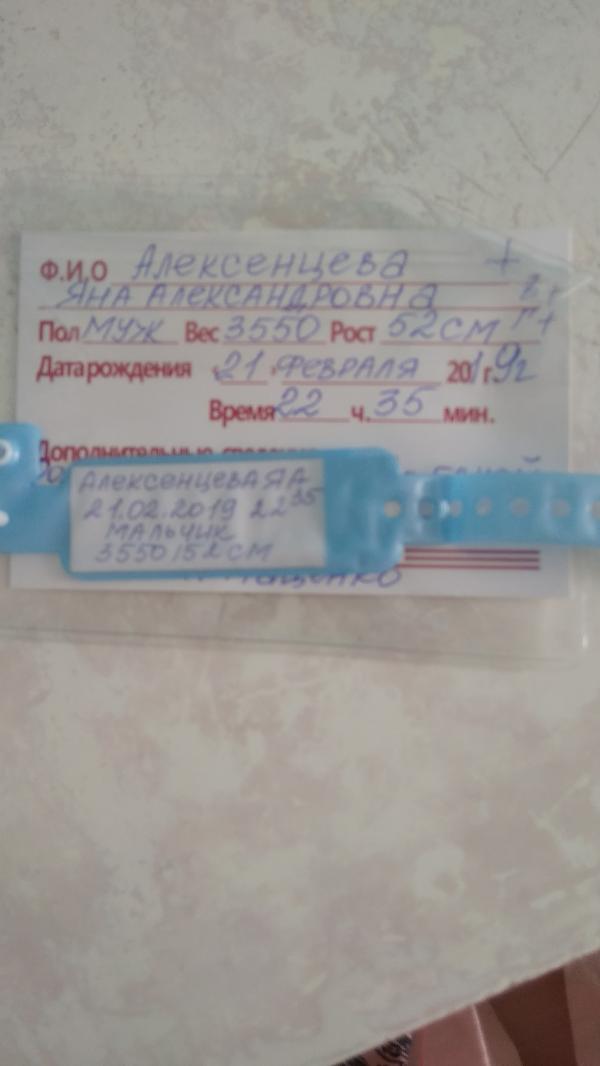 Ф.И.О Алексенцева +
Яна Александровна
Пол муж Вес 3550 Рост 52 см
Дата рождения «21» февраля 2019г
Время 22 ч. 35 мин.
Дополнительные сведения
Алексенцева Я А
21.02.2019 22 35
мальчик
3550/52 см